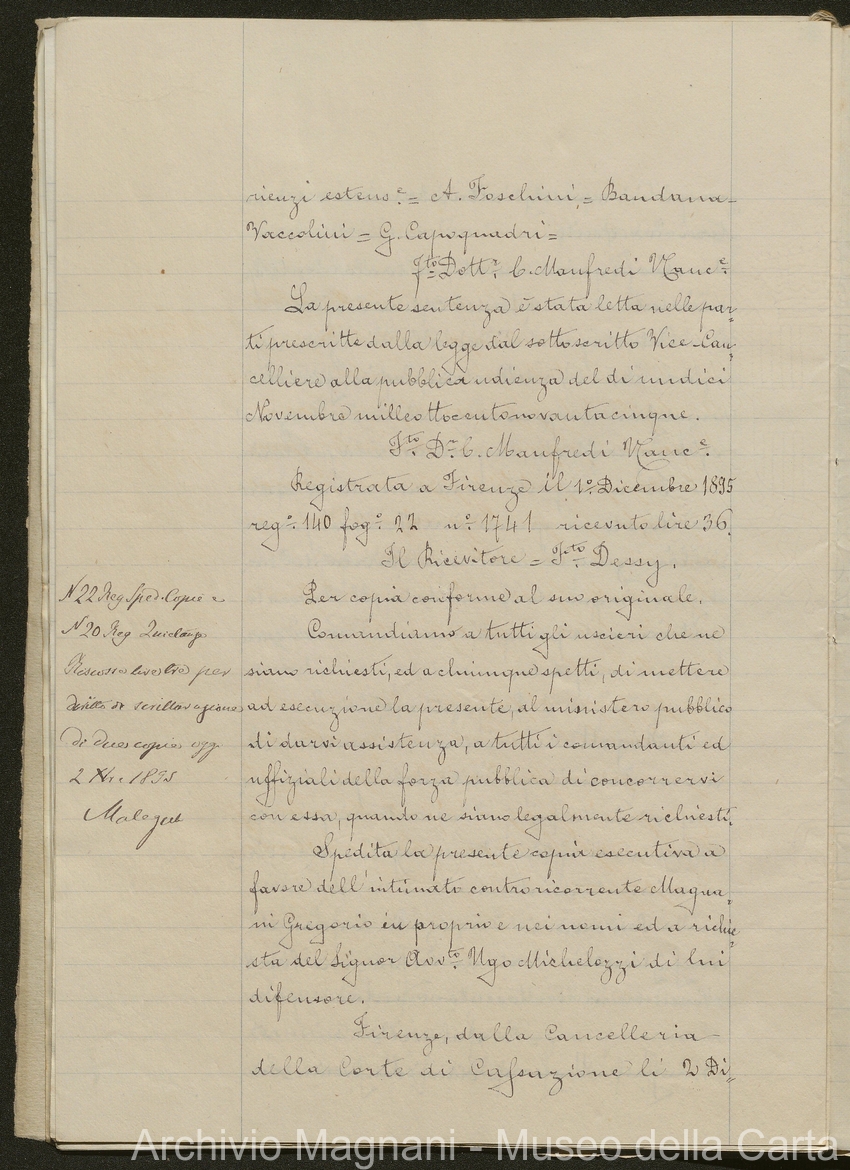 rienzi estens.e = A. Foschini = Bandana-
Vaccolini = G. Capoquadri =
F.to Dott.r C. Manfredi Vcanc.e
La presente sentenza è stata letta nelle par=
ti prescritte dalla legge dal sottoscritto Vice-Can=
celliere alla pubblica udienza del di undici
Novembre milleottocentonovantacinque.
F.to D.r C. Manfredi Vcanc.e
Registrata a Firenze il 1.o Dicembre 1895
reg.o 140 fog.o 22 n.o 1741 ricevuto lire 36.
Il Ricevitore = F.to Dessy.
Per copia conforme al suo originale.
Comandiamo a tutti gli uscieri che ne
siano richiesti, ed a chiunque spetti, di mettere
ad esecuzione la presente, al ministero pubblico
di darvi assistenza, a tutti i comandanti ed
uffiziali della forza pubblica di concorrervi
con essa, quando ne siano legalmente richiesti.
Spedita la presente copia esecutiva a
favore dell'intimato controricorrente Magna=
ni Gregorio in proprio e nei nomi ed a richie=
sta del Signor Avv.to Ugo Michelozzi di lui
difensore.
Firenze, dalla Cancelleria
della Corte di Cassazione li 2 Di=
N 22 Reg Sped. Copie e
N 20 Reg Quietanze
Riscosso lire per
diritto di scritturazione
di due copie oggi
2 Xbre 1895
Archivio Magnani - Museo della Carta